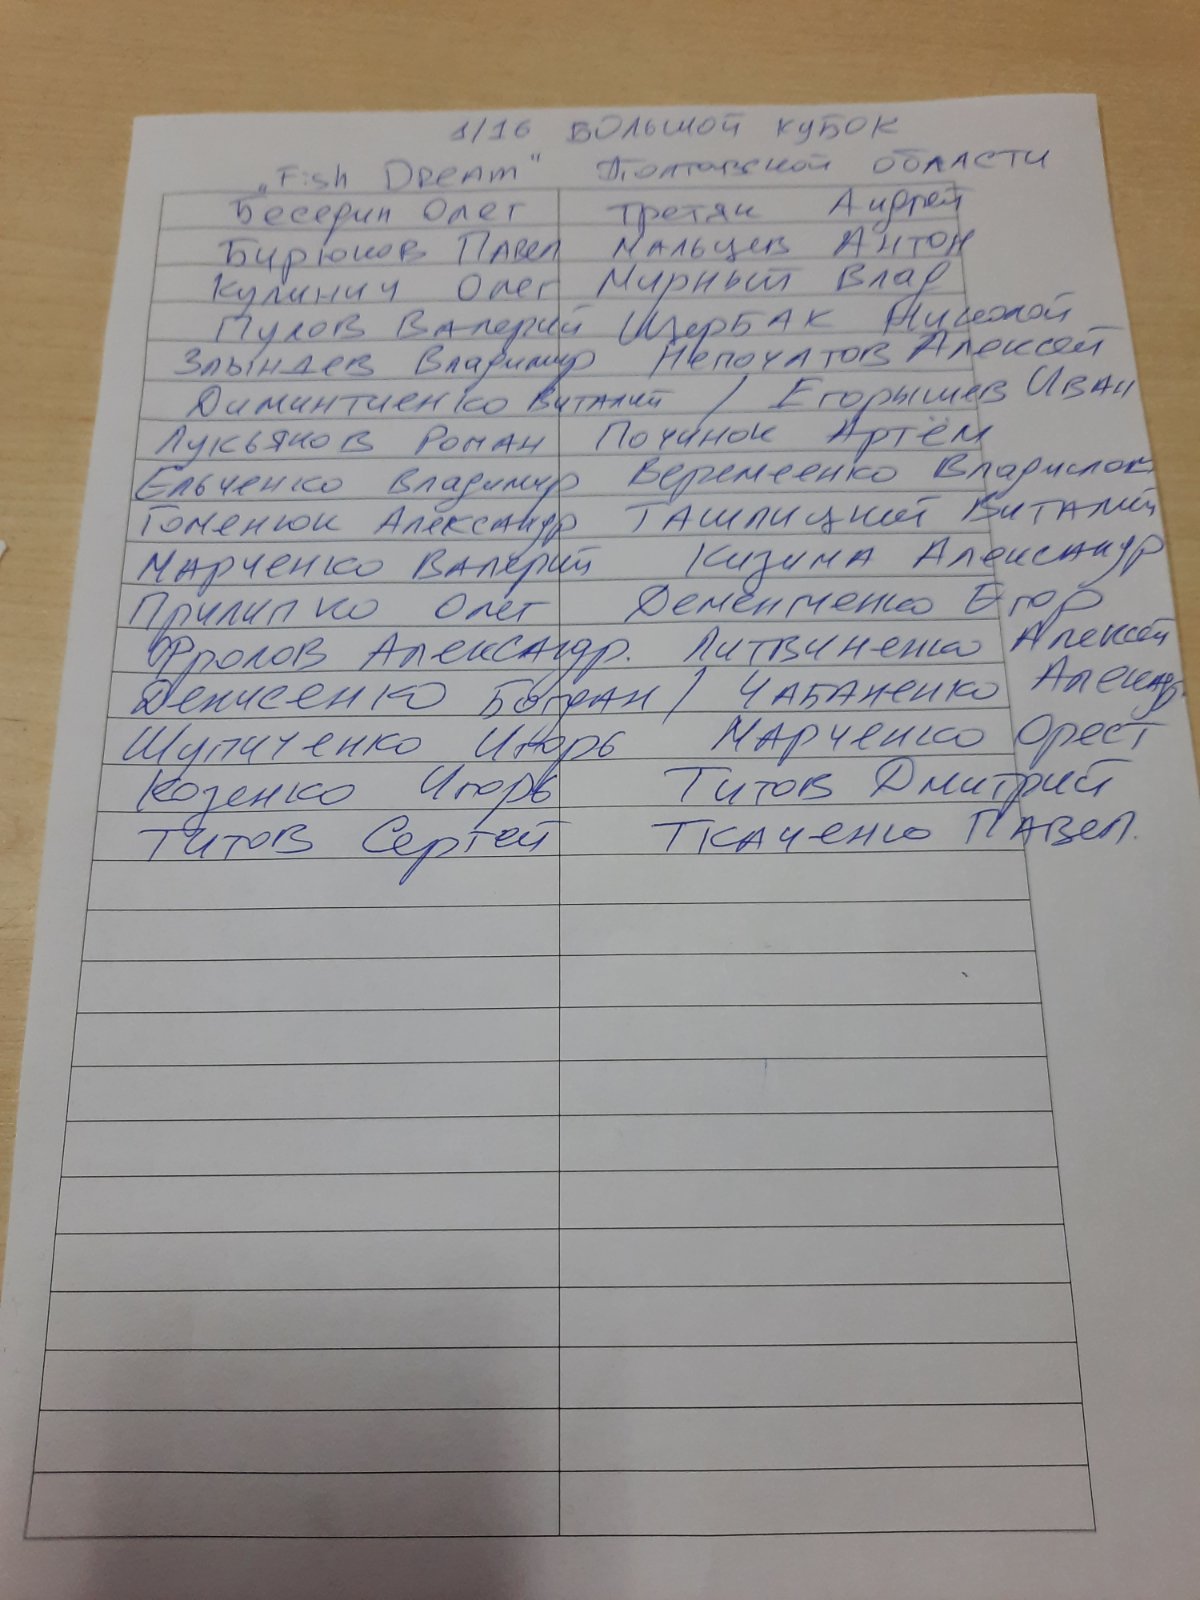 1/16 БОЛЬШОЙ КУБОК
„Fish Dream" Полтавской области
Беседин Олег Третяк Андрей
Бирюков Павел Мальцев Антон
Кулинич Олег Мирный Влад
Пулов Валерий Щербак Николой
Злындев Владимир Непочатов Алексей
Диминтиенко Виталий / Егорышев Иван
Лукьянов Роман Починок Артём
Ельченко Владимир Веремеенко Владислав
Гоменюк Александр Ташлицкий Виталий
Марченко Валерий Кизима Александр
Прилипко Олег Дементменко Егор
Фролов Александр. Литвиненко Алексей
Денисенко Богдан / Чабаненко Александр
Шупиченко Игорь Марченко Орест
Козенко Игорь Титов Дмитрий
Титов Сергей Ткаченко Павел.